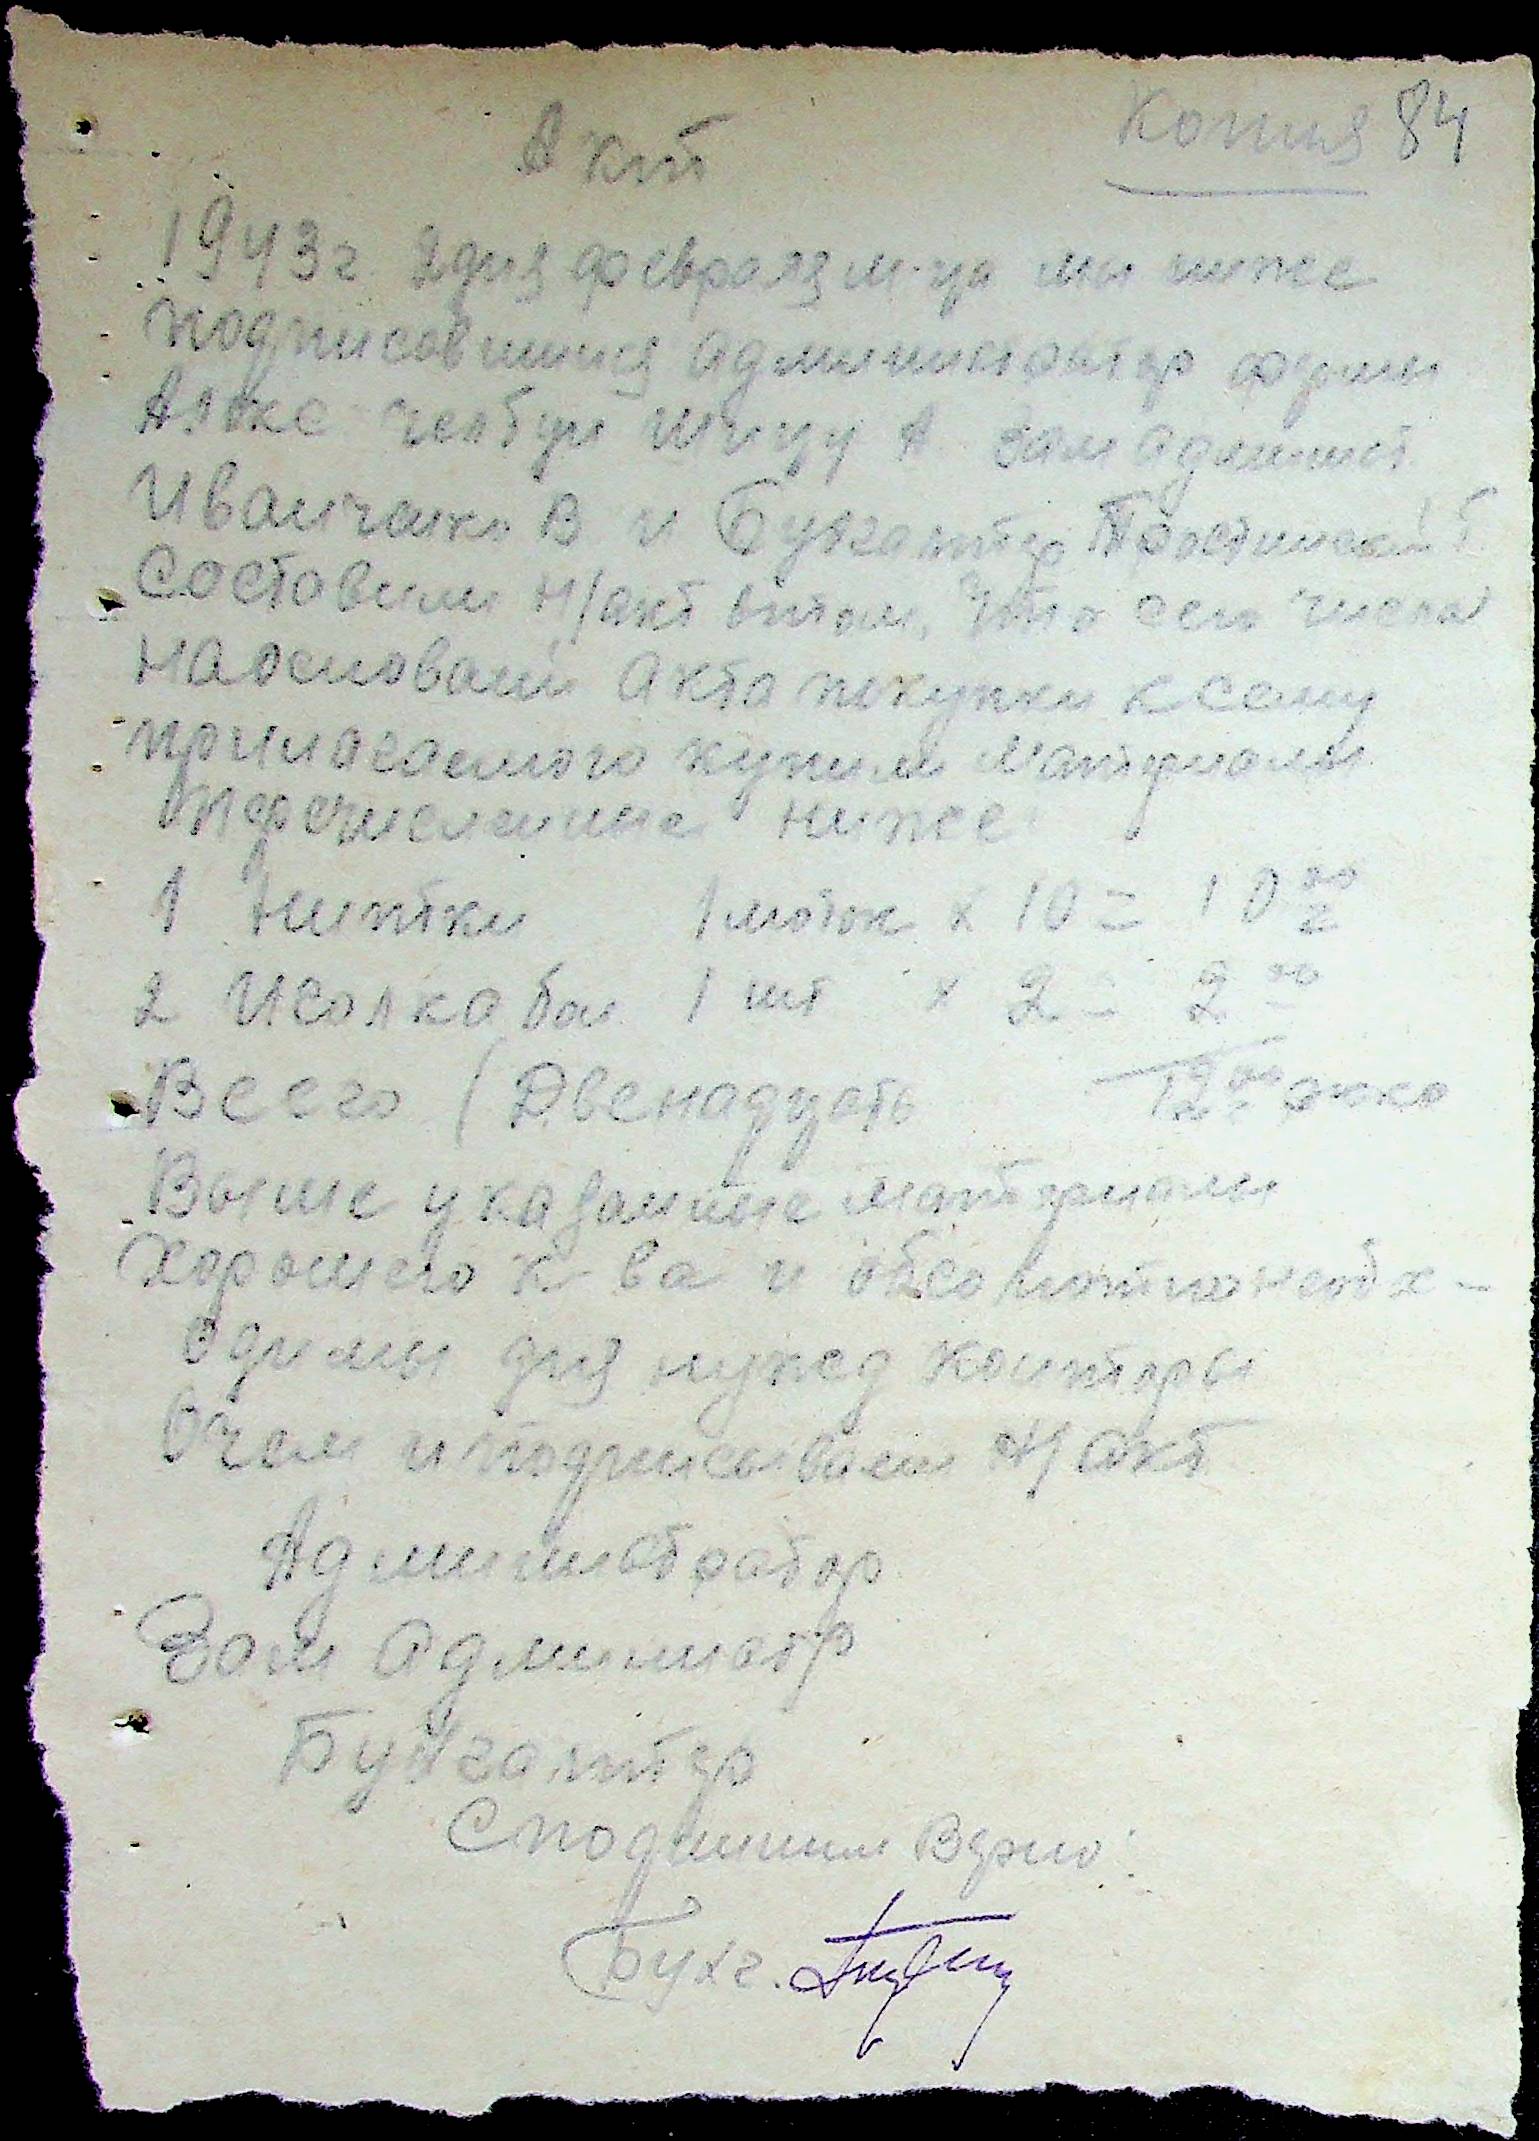 Копия 84
Акт
1943 г 2 дня февраля м-ца мы ниже
подписовшиия администратор фермы
Шицу А Зам админист.
Иванченко В и Бухгалтер
Составили н/акт втом, что сего числа
наосновании акта покупки ксему
прилогаемого купили материалы
перечисленные ниже:
1 Нитки 1 моток х 10 = 10 00
2 Исолка бол 1 шт х 2 = 2 00
Всего (Двенадцать 12 00
Выше указанные материалы
Хорошего к-ва и обсолютно необх-
одимы для нужд конторы
Очем и подписываем н/акт
Администратор
Зам Администр
Бухгалтер
Сподлиным Верно:
Бухг.